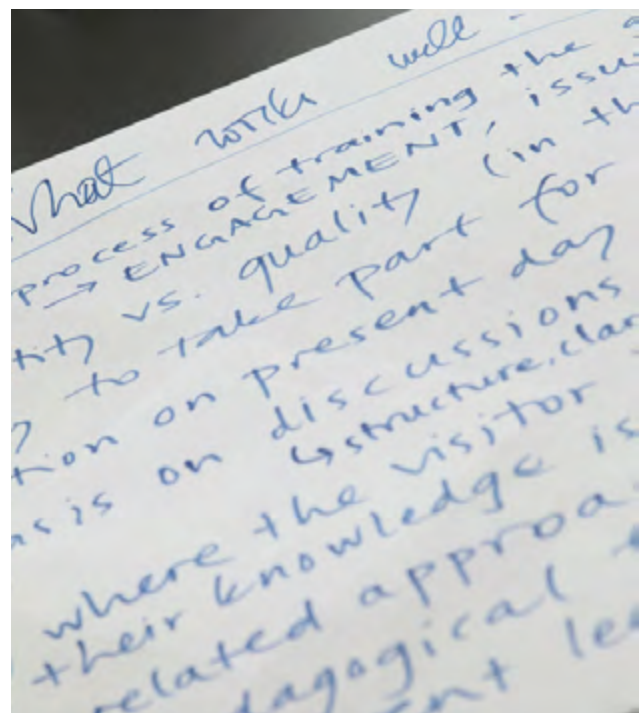 What work well -
process of training the
→ ENGAGEMENT, issu
tity vs. quality (in th
to take part for
tion on present day
asis on discussions
↳ structure, clar
where the visitor
their knowledge is
related approa
dagogical
ent lea